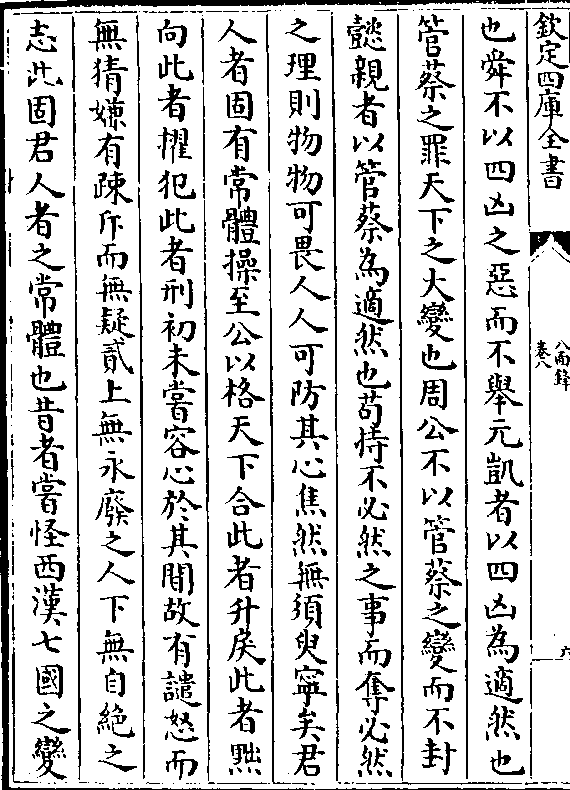 欽定四庫全書
八面鋒
卷八
六
也舜不以四凶之惡而不舉元凱者以四凶為適然也
管蔡之罪天下之大變也周公不以管蔡之變而不封
懿親者以管蔡為適然也茍恃不必然之事而奪必然
之理則物物可畏人人可防其心焦然無須臾寧矣君
人者固有常體操至公以格天下合此者升戾此者黜
向此者擢犯此者刑初未嘗容心於其間故有譴怒而
無猜嫌有疎斥而無疑貳上無永廢之人下無自絶之
志此固君人者之常體也昔者嘗怪西漢七國之變